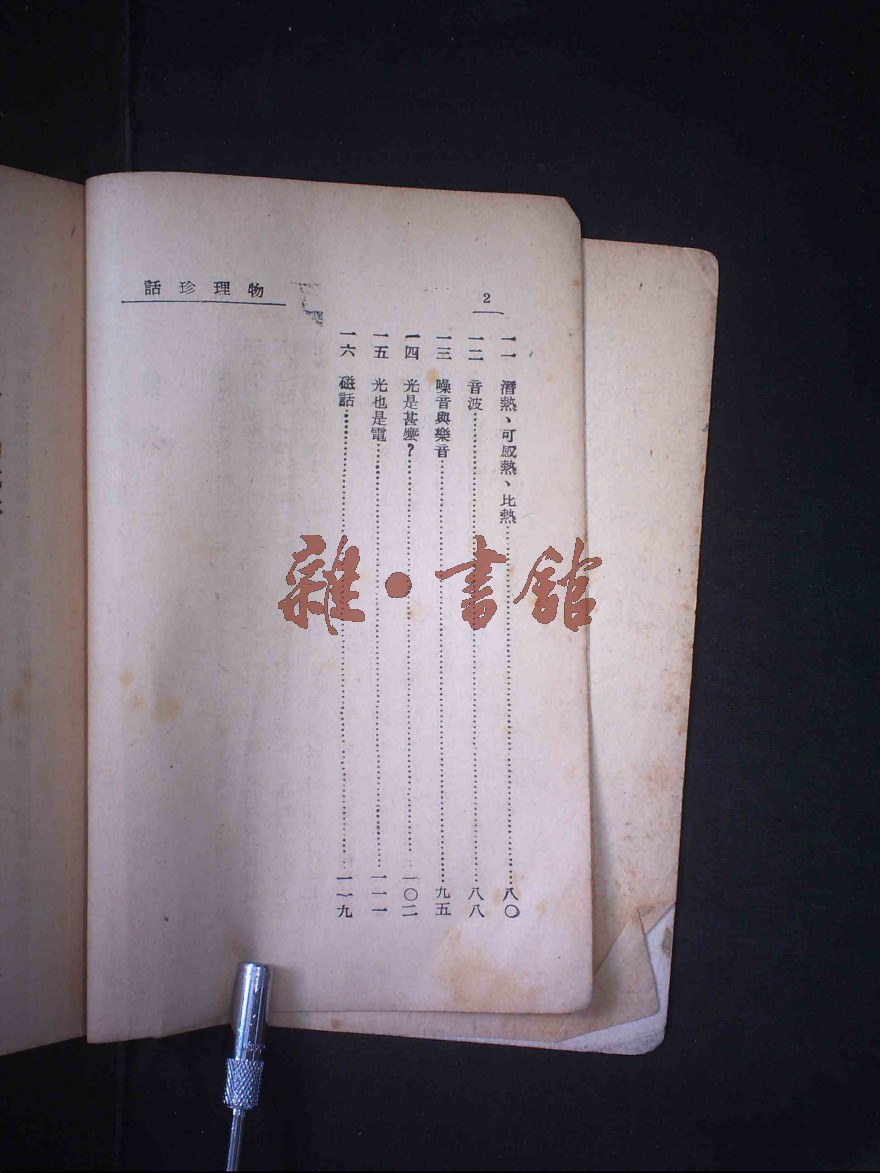 物理珍話
2
一一 潛熱、可感熱、比熱……八〇
一二 音波……八八
一三 噪音與樂音……九五
一四 光是甚麼？……一〇二
一五 光也是電……一一一
一六 磁話……一一九
雜·書館